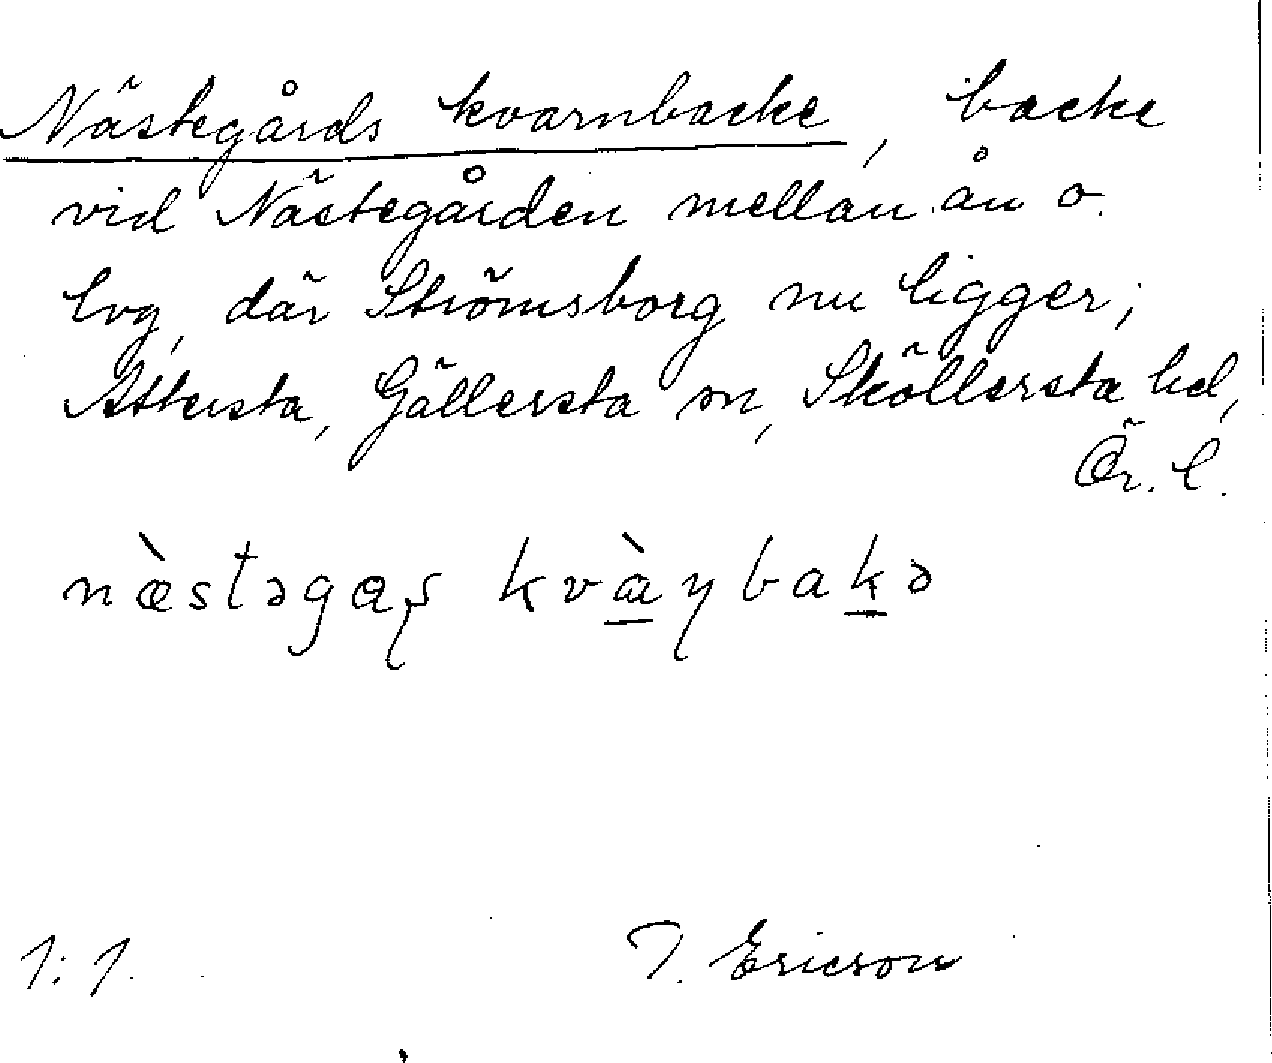 Nästegårds kvarnbacke, backe
vid Nästegården mellan ån o.
lvg, där Strömsborg nu ligger;
Attersta, Gällersta sn, Sköllersta hd,
Ör. l.
næ̀stəgaṣ kvàṇbakə
1:1. T. Ericson